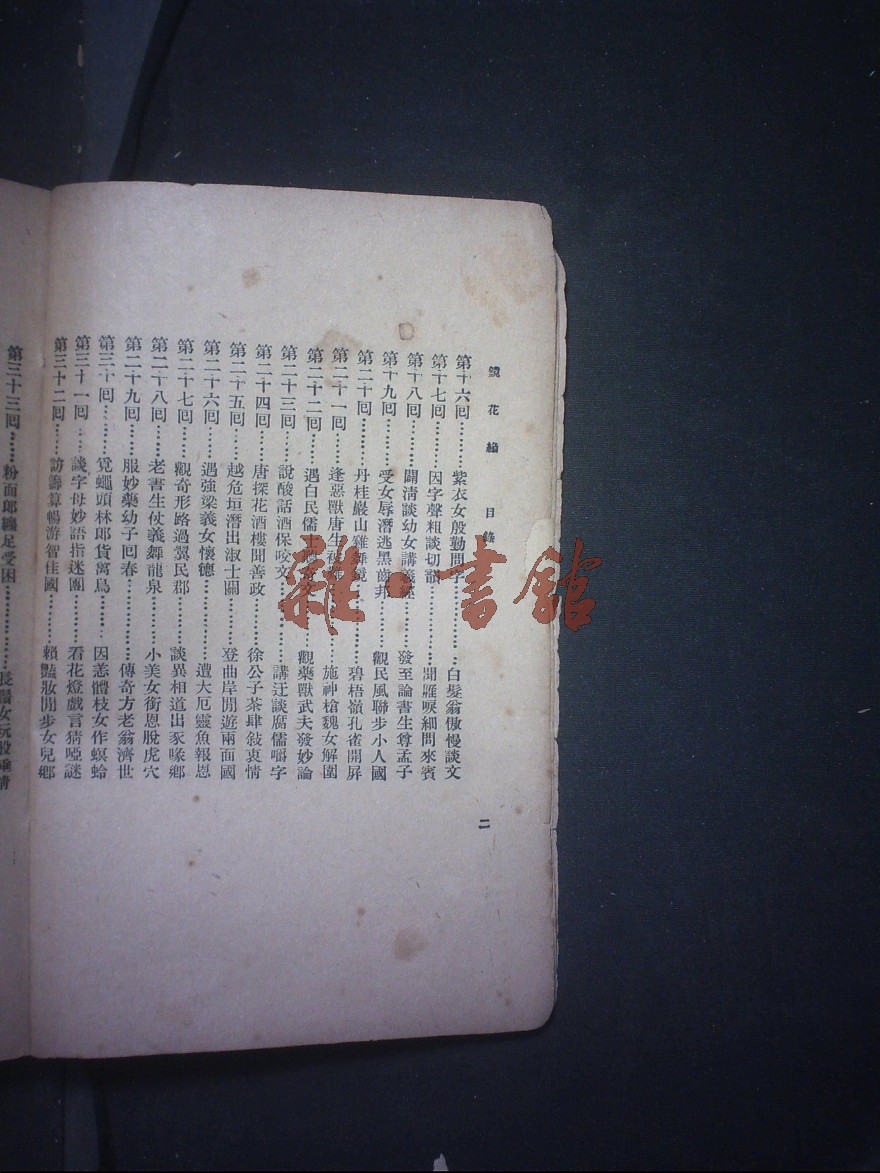 鏡花緣 目錄 二
第十六囘 紫衣女殷勤問字 白髮翁傲慢談文
第十七囘 因字聲粗談切韻 聞雁唳細問來賓
第十八囘 闢清談幼女講義經 發至論書生尊孟子
第十九囘 受女辱潛逃黑齒邦 觀民風聯步小人國
第二十囘 丹桂巖山雞舞鏡 碧梧嶺孔雀開屏
第二十一囘 逢惡獸唐生 施神槍魏女解圍
第二十二囘 遇白民儒士 觀藥獸武夫發妙論
第二十三囘 說酸話酒保咬文 講迂談腐儒嚼字
第二十四囘 唐探花酒樓聞善政 徐公子茶肆敍衷情
第二十五囘 越危垣潛出淑士關 登曲岸閒遊兩面國
第二十六囘 遇強梁義女懷德 遭大厄靈魚報恩
第二十七囘 觀奇形路過翼民郡 談異相道出豕喙鄉
第二十八囘 老書生仗義舞龍泉 小美女銜恩脫虎穴
第二十九囘 服妙藥幼子囘春 傳奇方老翁濟世
第三十囘 覓蠅頭林郎貨禽鳥 因恙體枝女作螟蛉
第三十一囘 談字母妙語指迷團 看花燈戲言猜啞謎
第三十二囘 訪籌算暢游智佳國 賴豔妝閒步女兒鄉
第三十三囘 粉面郎纏足受困 長鬚女玩股垂情
雜·書館